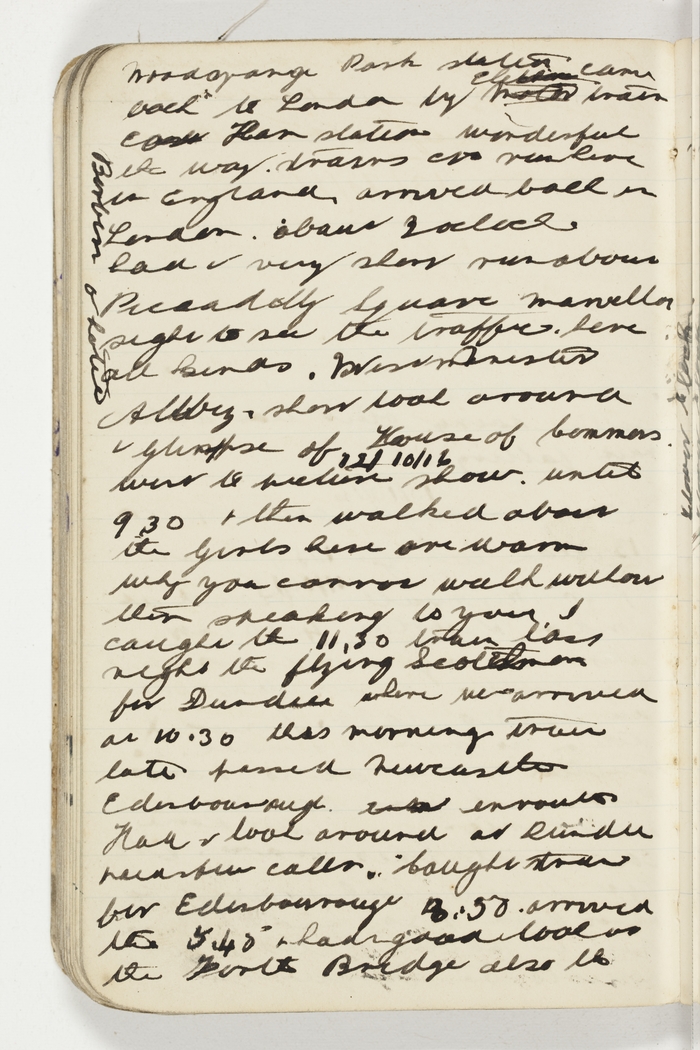 Woodgrange Park station came
back to London by Electric train
East Ham station wonderful
the way trains are run here
in England, arrived back in
London. about 7 oclock
had a very short run about
Piccadilly Square marvellous
sight to see the traffic. here
all kinds. Westminster
Abbey. short look around
a glimpse of House of Commons.
12/10/16
went to picture show. until
9.30 & then walked about
the Girls here are warm
why you cannot walk without
them speaking to you, I
caught the 11,30 train last
night the flying Scotchman
for Dundee where we arrived
at 10.30 this morning train
late. passed Newcastle
Edesbourough. enroute
Had a look around at Dundee
calls. Caught train
for Edesbourouge 3.50. arrived
the 5.45 & had a good look at
the Forth Bridge also the
Hotel